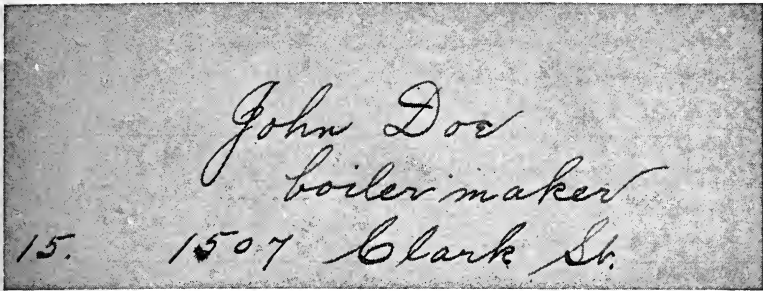 John Doe
boiler maker
15. 1507 Clark St.